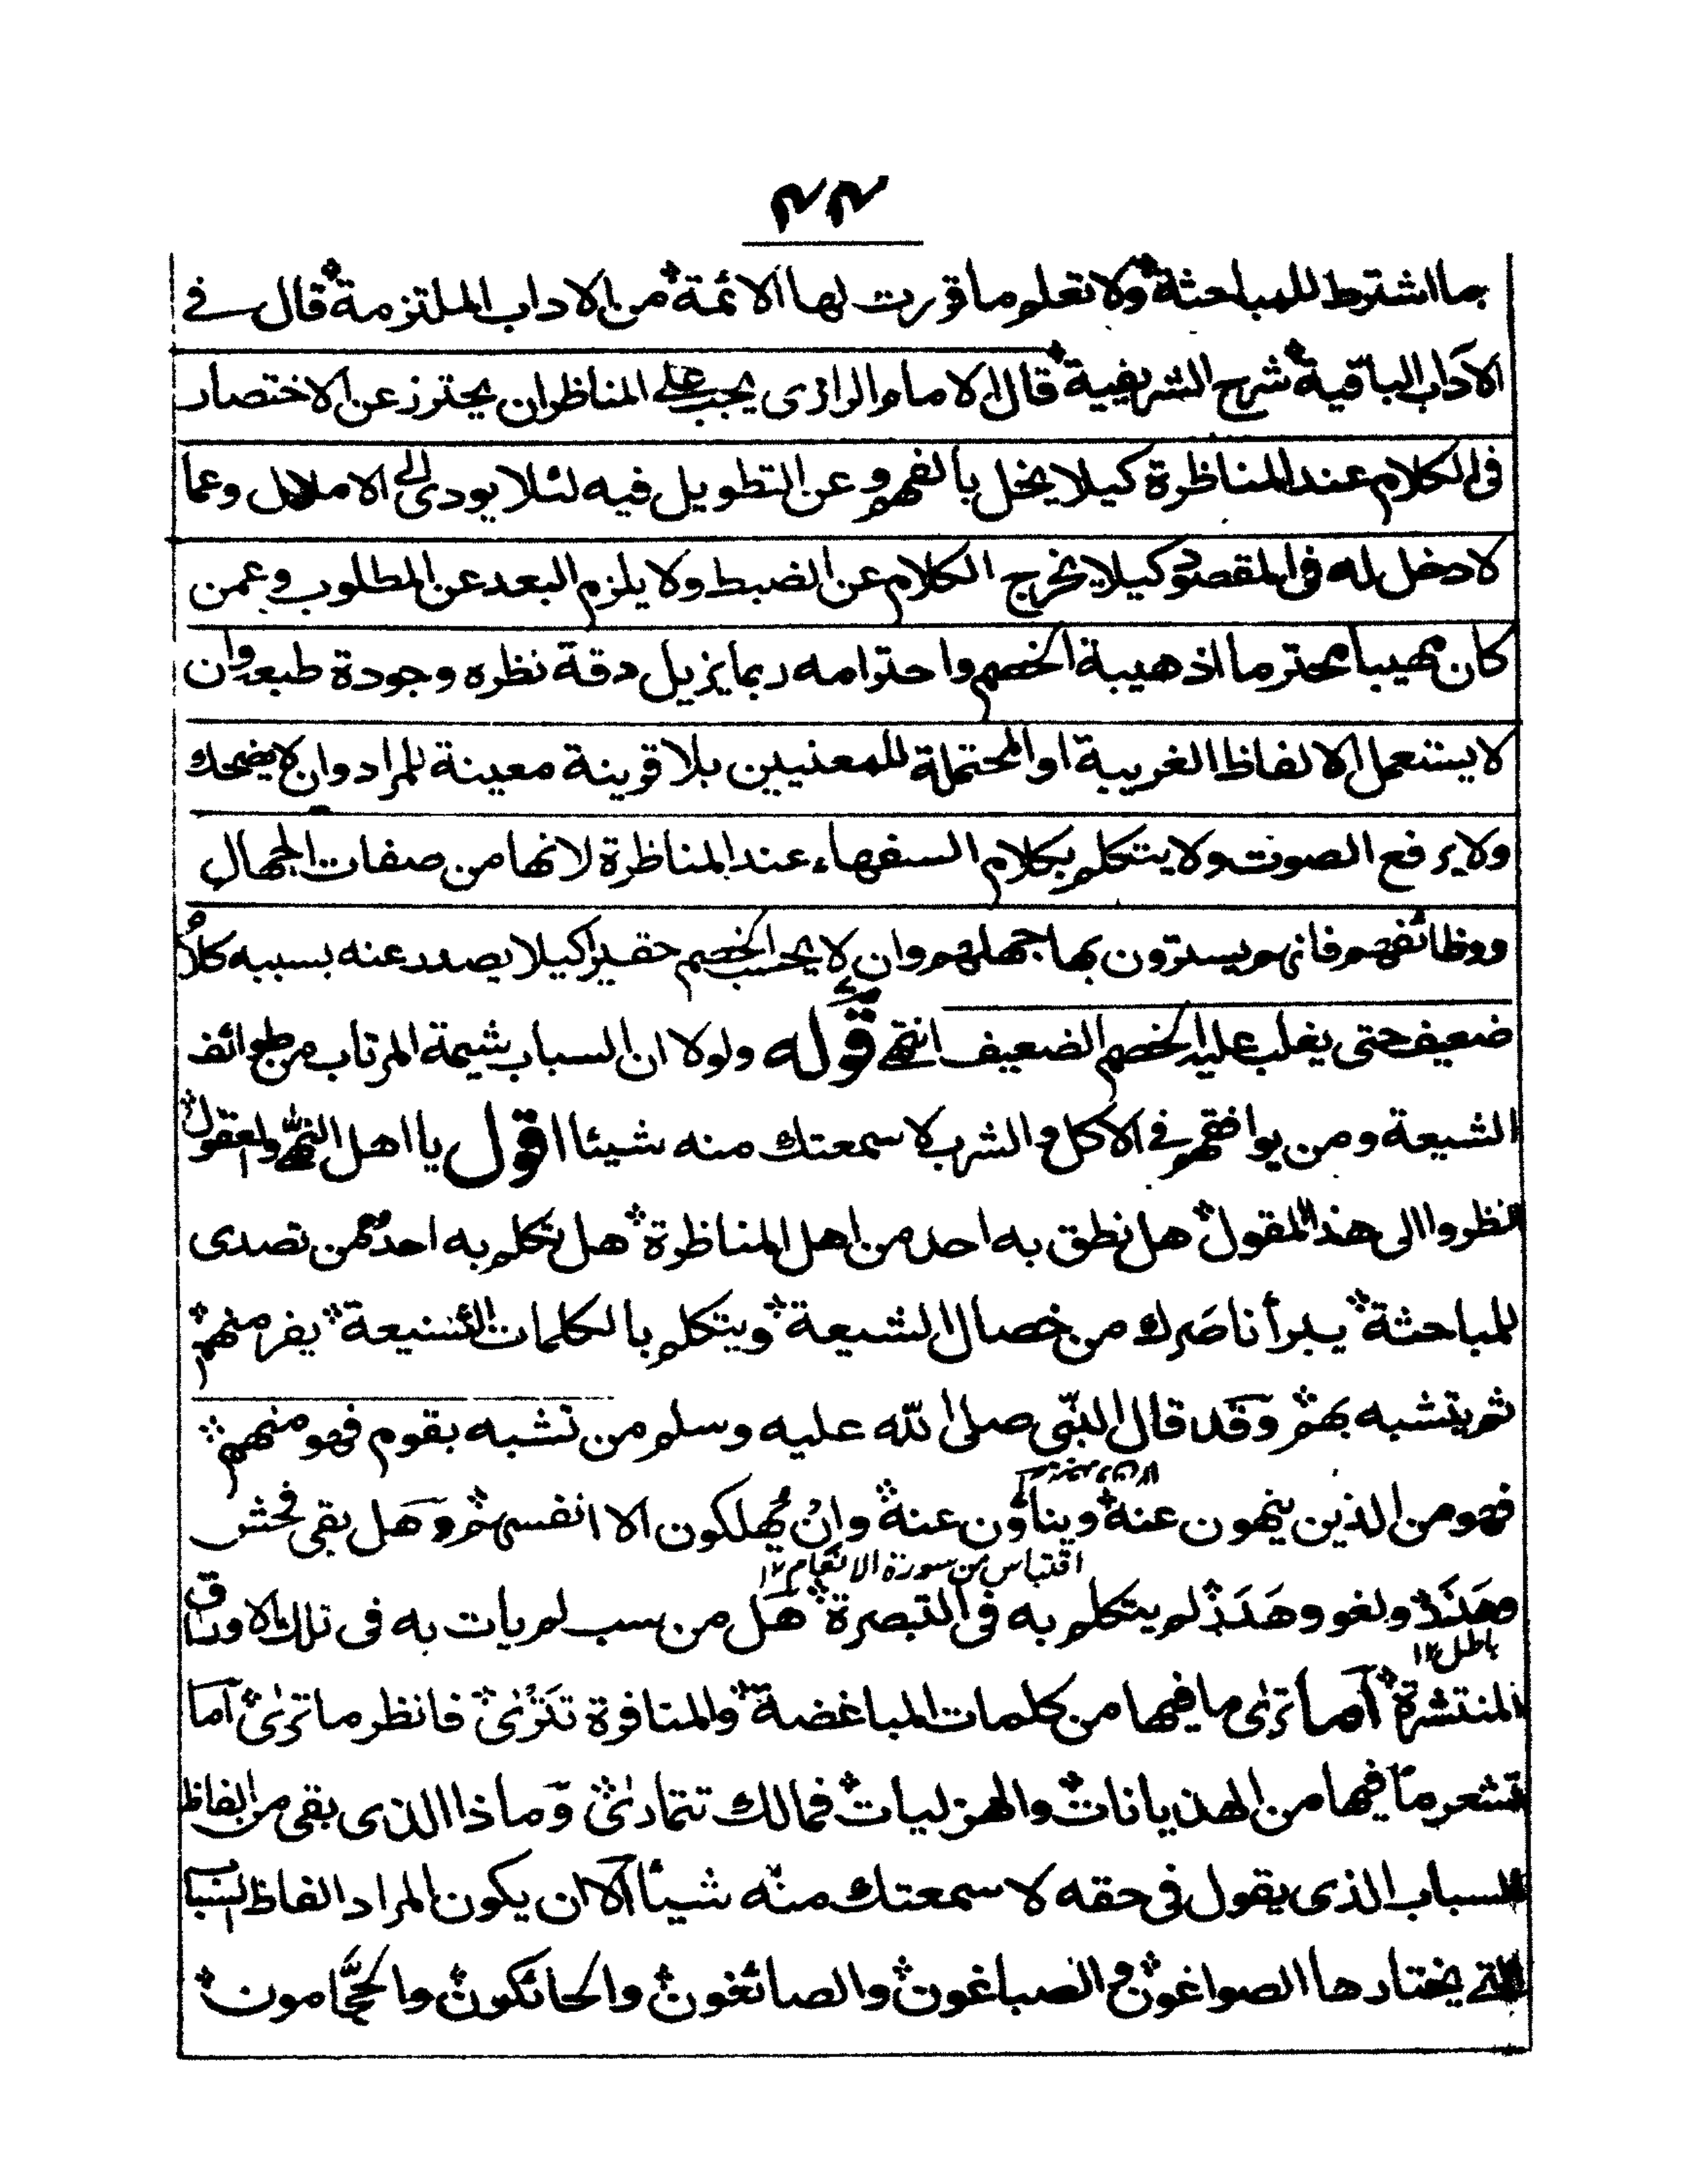 ٤٤
بما اشترط للمباحثة ولا تعلم ما قررت لها الائمة من الاداب الملتزمة قال فے
الآداب الباقية شرح الشريفية قال الامام الرازى يجب على المناظر ان يحترز عن الاختصار
فى الكلام عند المناظرة كيلا يخل بالفهم و عن التطويل فيه لئلا يودى الى الاملال وعما
لا دخل له فى المقصود كيلا يخرج الكلام عن الضبط ولا يلزم البعد عن المطلوب وعمن
كان مهيبا محترما اذ هيبة الخصم واحترامه ربما يزيل دقة نظره وجودة طبعه وان
لا يستعمل الالفاظ الغريبة او المحتملة للمعنيين بلا قرينة معينة للمراد وان لا يضحك
ولا يرفع الصوت ولا يتكلم بكلام السفهاء عند المناظرة لانها من صفات الجهال
ووظائفهم فانهم يسترون بها جهلهم وان لا يحسب الخصم حقيرا كيلا يصدر عنه بسببه كلام
ضعيف حتى يغلب عليه الخصم الضعيف انتهى قوله ولولا ان السباب شيمة المرتاب من طوائف
الشيعة ومن يوافقهم فى الاكل والشرب لاسمعتك منه شيئا اقول يا اهل النهى والعقول
انظروا الى هذا المقول هل نطق به احد من اهل المناظرة هل تكلم به احد ممن تصدى
للمباحثة يبرأ ناصرك من خصال الشيعة ويتكلم بالكلمات الشنيعة يفر منهم
ثم يتشبه بهم وقد قال النبى صلى الله عليه وسلم من تشبه بقوم فهو منهم
فهو من الذين ينهون عنه وينأون عنه وان يهلكون الا انفسهم وهل بقى فحش
اقتباس من سورة الانعام ١٢
وهذر ولغو وهذر لم يتكلم به فى التبصرة هل من سب لم يات به فى تلك الاوراق
باطل ١٢
المنتشرة أما ترى ما فيها من كلمات المباغضة والمنافرة تترى فانظر ما ترى أما
تشعر ما فيها من الهذيانات والهزليات فمالك تتمادى وما ذا الذى بقى من الفاظ
السباب الذى يقول فى حقه لاسمعتك منه شيئا الا ان يكون المراد الفاظ السباب
التى يختارها الصواغون والصباغون والصائغون والحائكون والحجامون